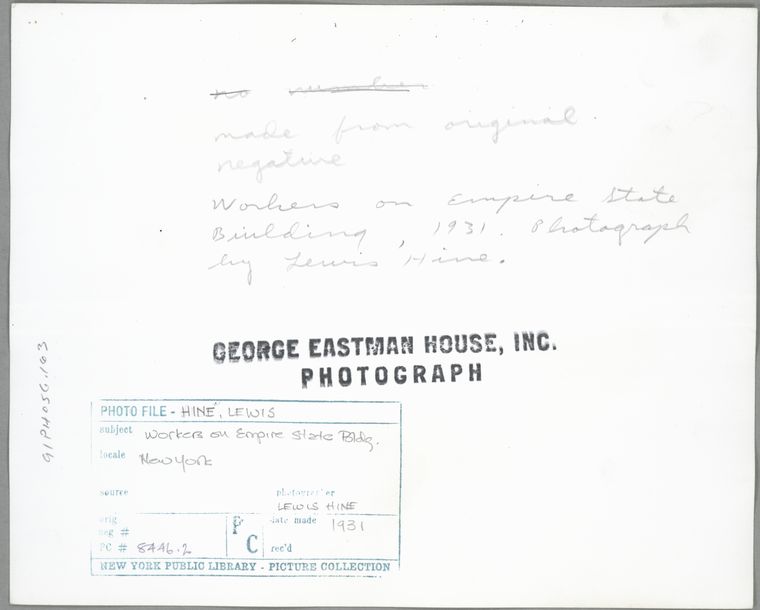 no number
made from original
negative
Workers on Empire State
Building, 1931. Photograph
by Lewis Hine.
GEORGE EASTMAN HOUSE, INC.
PHOTOGRAPH
91PH056.163
PHOTO FILE - HINE, LEWIS
subject Workers on Empire State Bldg.
locale New York
source photographer
LEWIS HINE
orig. date made 1931
neg #
PC
PC # 8446.2 rec'd
NEW YORK PUBLIC LIBRARY - PICTURE COLLECTION